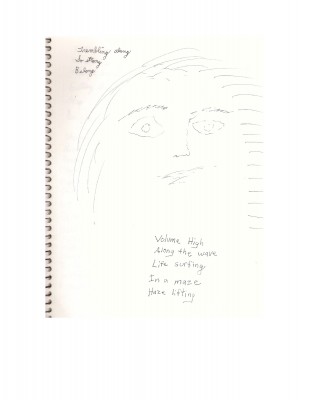 Trembling along
So strong
Belong
Volume High
Along the wave
Life surfing.
In a maze
Haze lifting